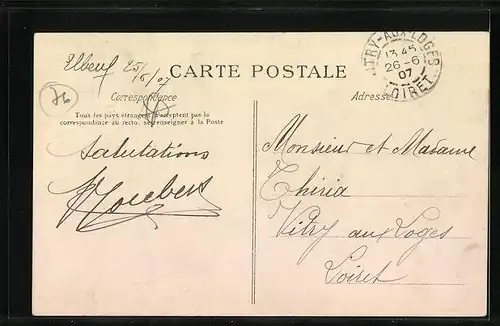 Elbeuf 25/6/07
CARTE POSTALE
Correspondance
Adresse
Tous les pays étrangers n'acceptent pas la
correspondance au recto, se renseigner à la Poste
76
Salutations
Joubert
VITRY-AUX-LOGES
13 45
26-6
07
LOIRET
Monsieur et Madame
Thiria
Vitry aux Loges
Loiret